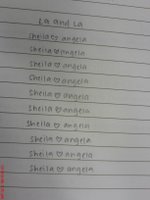 La and La
sheila ♡ angela
Sheila ♡ angela
Sheila ♡ angela
Sheila ♡ angela
Sheila ♡ angela
Sheila ♡ angela
Sheila ♡ angela
Sheila ♡ angela
Sheila ♡ angela
Sheila ♡ angela